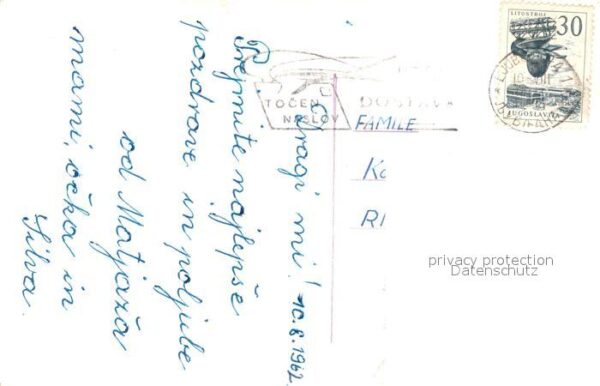 Dragi moji! 10.8.1962.
Prejmite najlepše
pozdrave in poljube
od Matjaža
mami, očka in
Silva.
TOČEN
NASLOV
DOSTAVA
FAMILE
Ko
RI
LITOSTROJ
30
JUGOSLAVIJA
privacy protection
Datenschutz